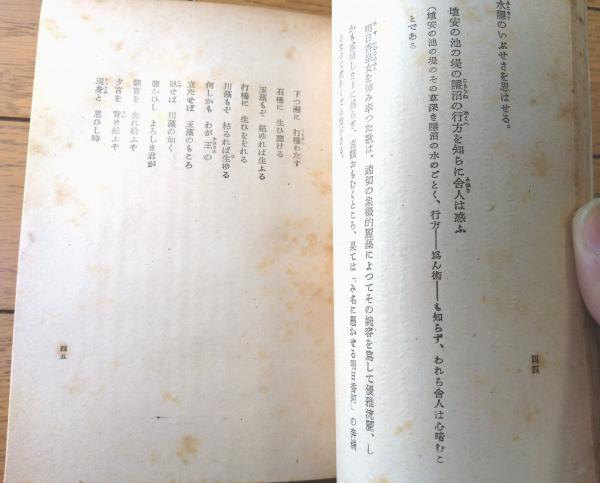 水隱のいぶせさを思はせる。
埴安の池の堤の隱沼の行方を知らに舍人は惑ふ
(埴安の池の堤のその草深き隱沼の水のごとく、行方――爲ん術――も知らず、われら舍人は心暗むこ
とである)
明日香皇女を悼み奉つた歌は、適切の象徵的麗藻によつてその婉容を寫して優雅流麗、し
果ては「み名に懸かせる明日香河」の
四四
下つ瀨に 打橋わたす
石橋に 生ひ靡ける
玉藻もぞ 絕ゆれば生ふる
打橋に 生ひををれる
川藻もぞ 枯るれば生ゆる
何しかも わが王の
立たせば 玉藻のもころ
臥せば 川藻の如く
靡かひし よろしき君が
朝宮を 忘れ給ふや
夕宮を 背き給ふや
現身と 思ひし時
四五